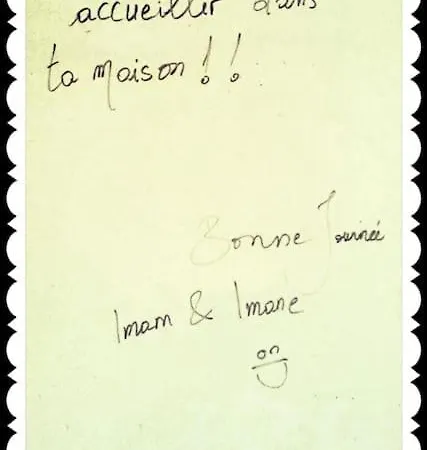 accueillir dans
ta maison !!
Bonne Journée
Imam & Imane